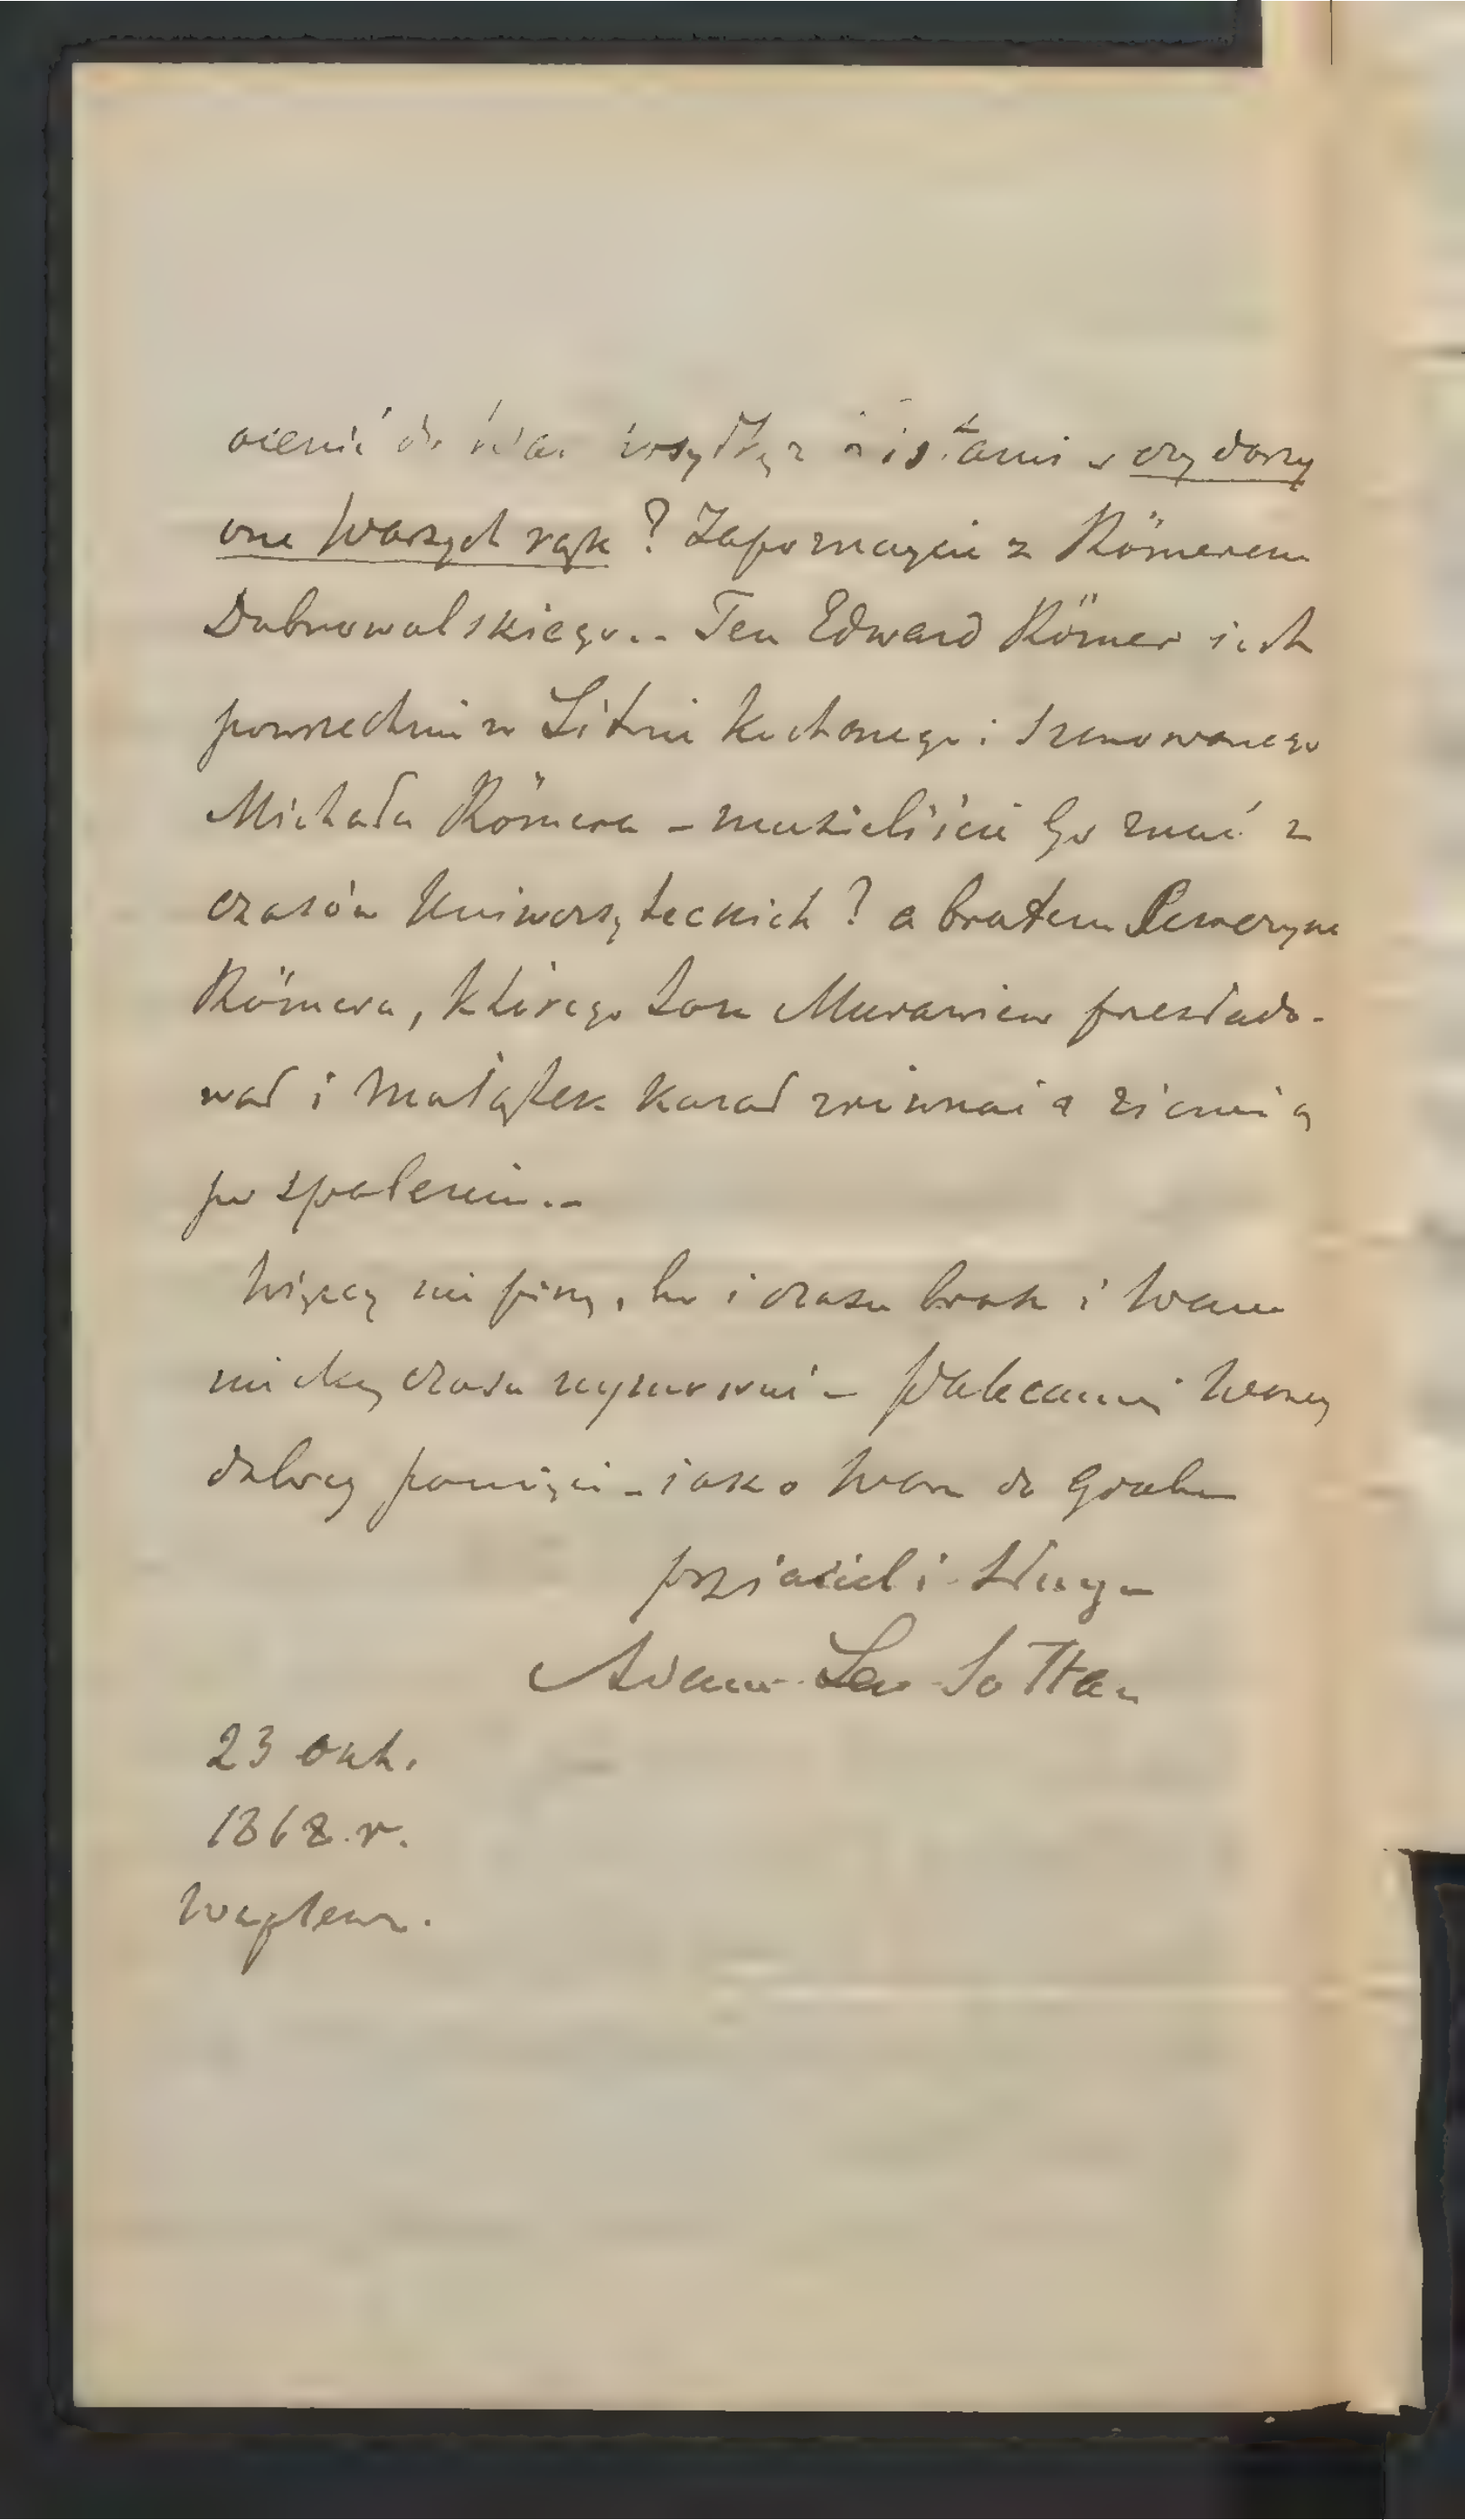 czy dojdą
one Waszych rąk? Zapoznajcie z Römerem
Dubrowolskiego.. Ten Edward Römer jest
powszechnie w Litwie kochanego i szanowanego
Michała Römera – musieliście Go znać z
czasów Uniwersyteckich? a bratem Seweryna
Römera, którego Murawiew prześlado-
wał i Majątek kazał zrównać z ziemią
po spaleniu.–
Więcej nie piszę, bo i czasu brak i Wam
nie chcę czasu zajmować – Polecam Waszej
dobrej pamięci – jako Wam do Grobu
przyjaciel i Sługa
Adam Lew Sołtan
23 okt.
1868 r.
Waplewo.